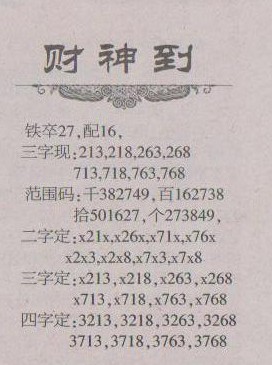 财神到
铁卒27,配16,
三字现:213,218,263,268
713,718,763,768
范围码:千382749,百162738
拾501627,个273849,
二字定:x21x,x26x,x71x,x76x
x2x3,x2x8,x7x3,x7x8
三字定:x213,x218,x263,x268
x713,x718,x763,x768
四字定:3213,3218,3263,3268
3713,3718,3763,3768